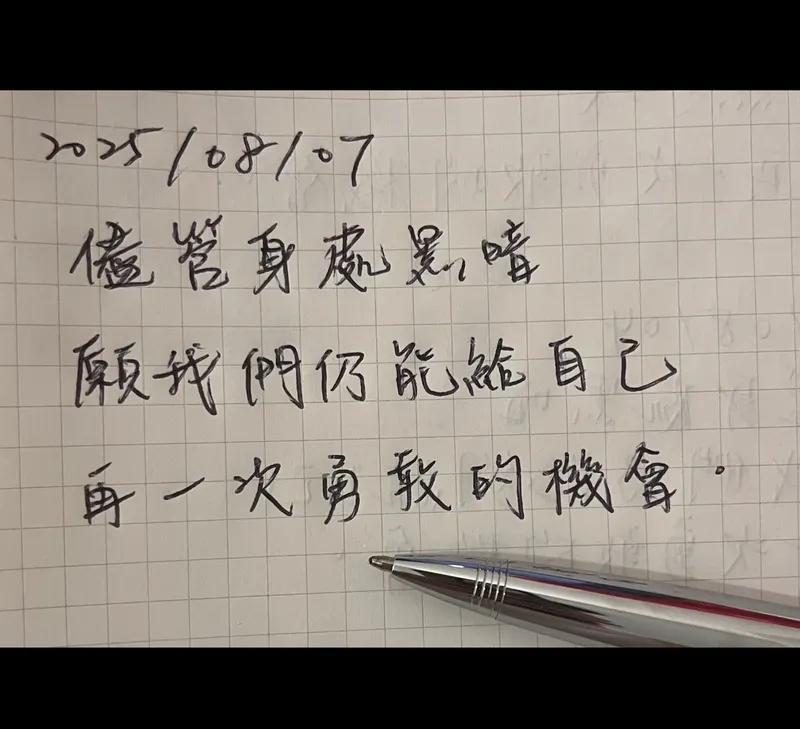 2025/08/07
儘管身處黑暗
願我們仍能給自己
再一次勇敢的機會。